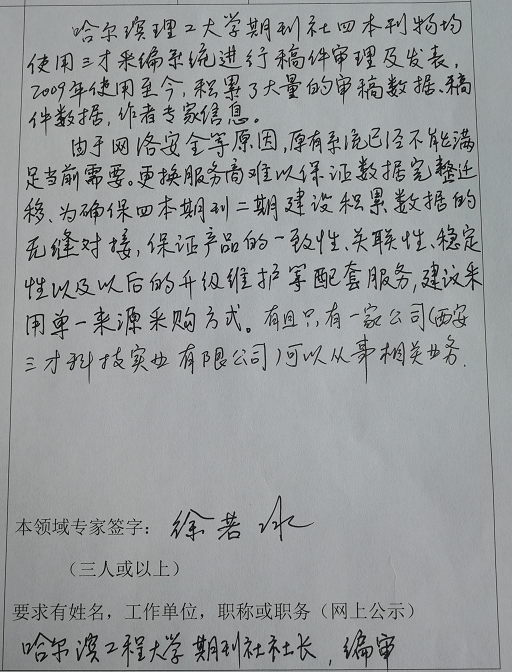 哈尔滨理工大学期刊社四本刊物均
使用三才采编系统进行稿件审理及发表，
2009年使用至今，积累了大量的审稿数据、稿
件数据，作者专家信息。
由于网络安全等原因，原有系统已经不能满
足当前需要。更换服务商难以保证数据完整迁
移、为确保四本期刊二期建设积累数据的
无缝对接，保证产品的一致性、关联性、稳定
性以及以后的升级维护等配套服务，建议采
用单一来源采购方式。有且只有一家公司（西安
三才科技实业有限公司）可以从事相关业务.
本领域专家签字：徐若冰
（三人或以上）
要求有姓名，工作单位，职称或职务（网上公示）
哈尔滨工程大学期刊社社长，编审